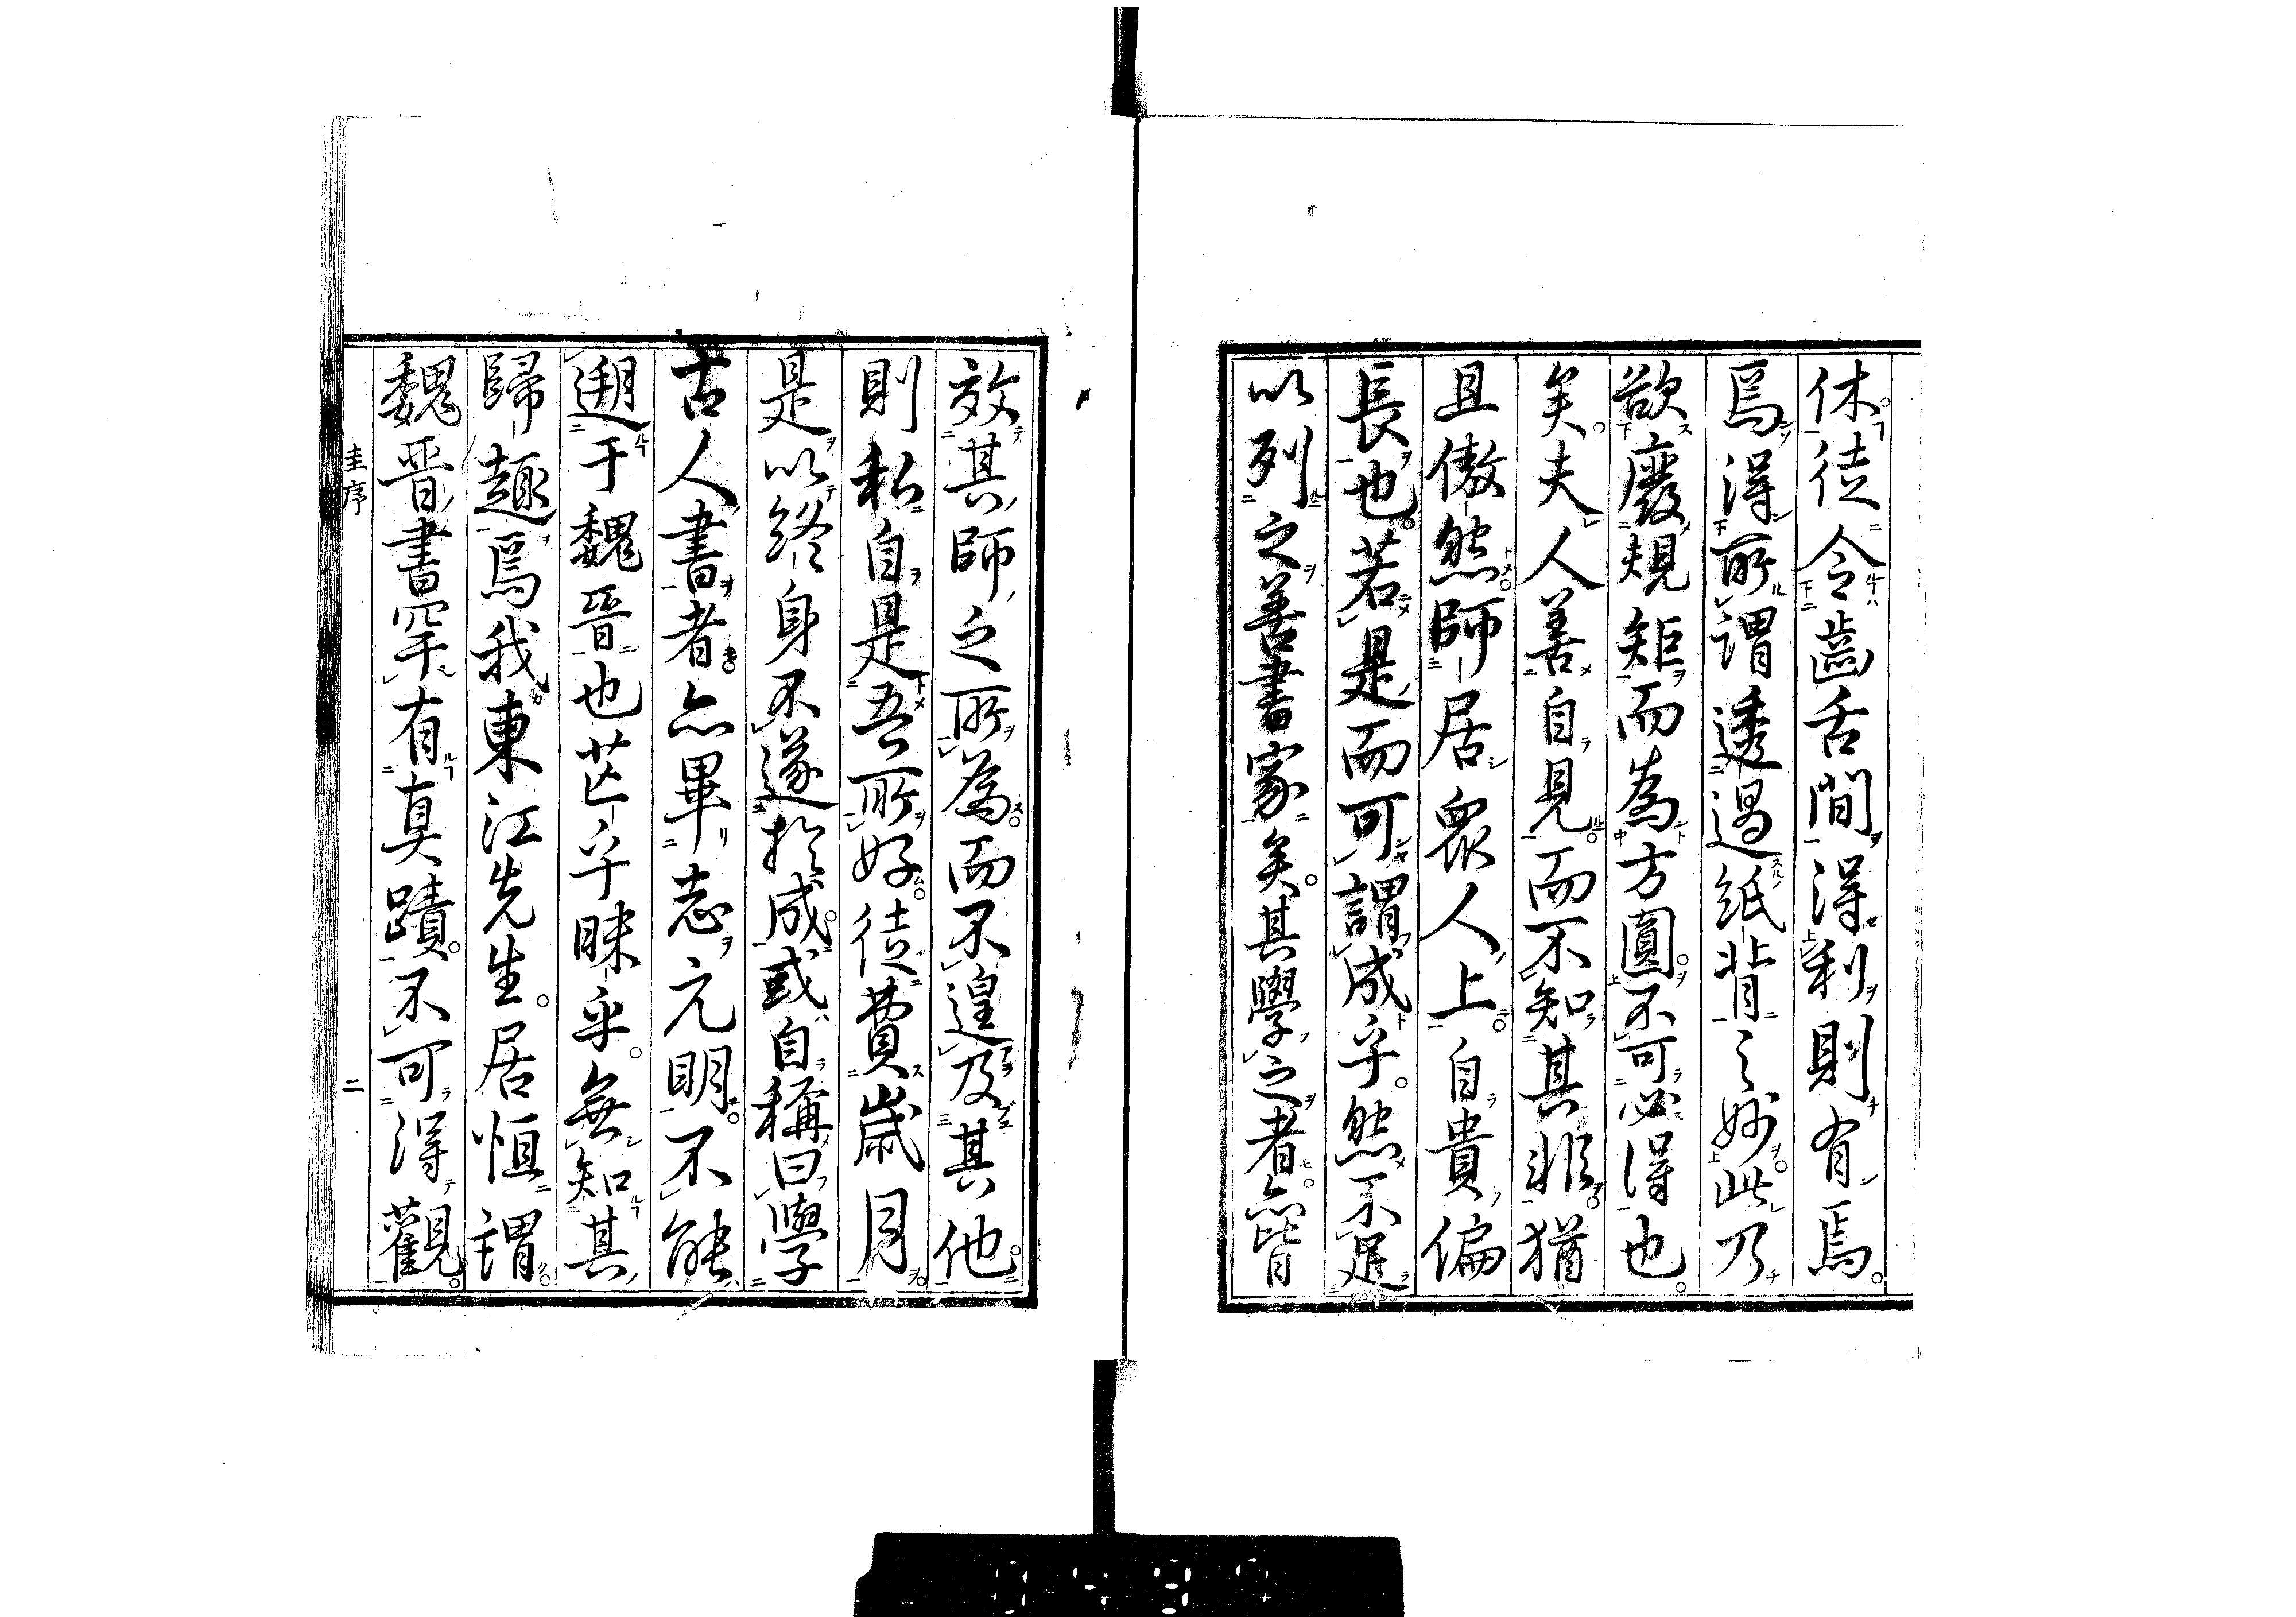 休徒令齒舌間得利則有焉
焉得所謂透過紙背之妙此乃
欲廢規矩而為方圓不可必得也
矣夫人善自見而不知其非猶
且傲然師居眾人上自貴偏
長也若是而可謂成乎然不足
以列之善書家矣其學之者亦皆
效其師之所為而不遑及其他
則私自是吾所好徒費歲月
是以終身不遂於成或自稱曰學
古人書者亦畢志元明不能
遡于魏晉也茫乎昧乎無知其
歸趣焉我東江先生居恒謂
魏晉書罕有真蹟不可得觀
圭序
二